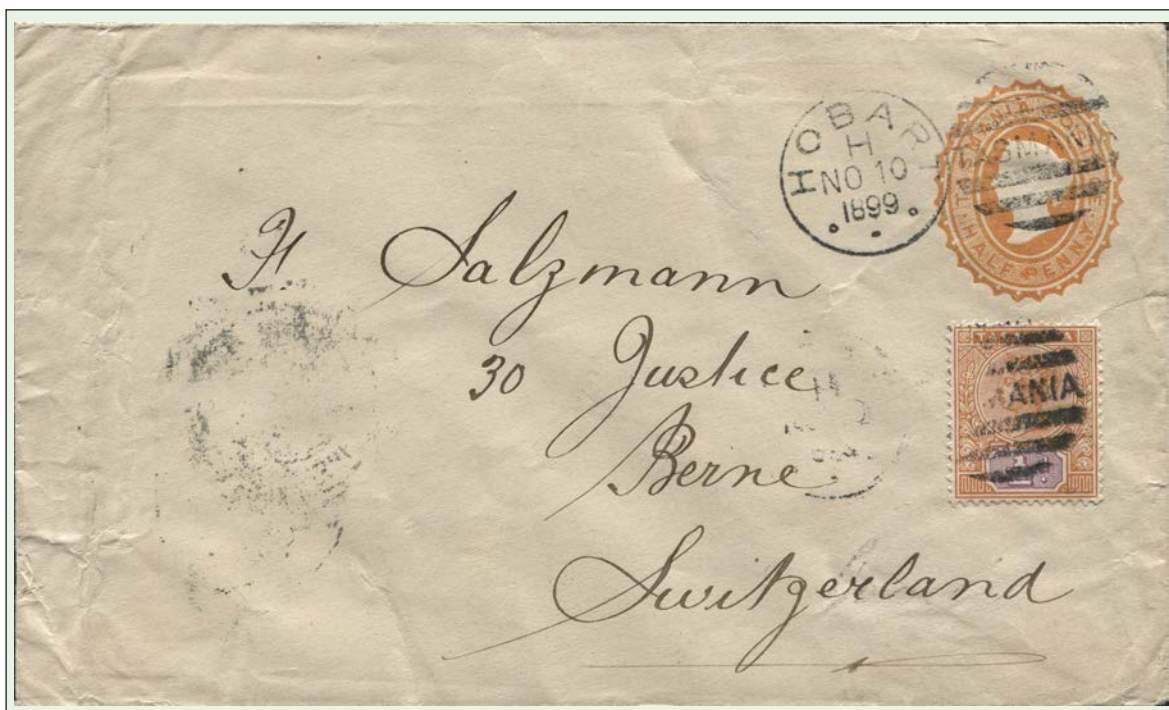 HOBART
H
NO 10
1899
TASMANIA
HALF PENNY
MANIA
H. Salzmann
30 Justice
Berne
Switzerland